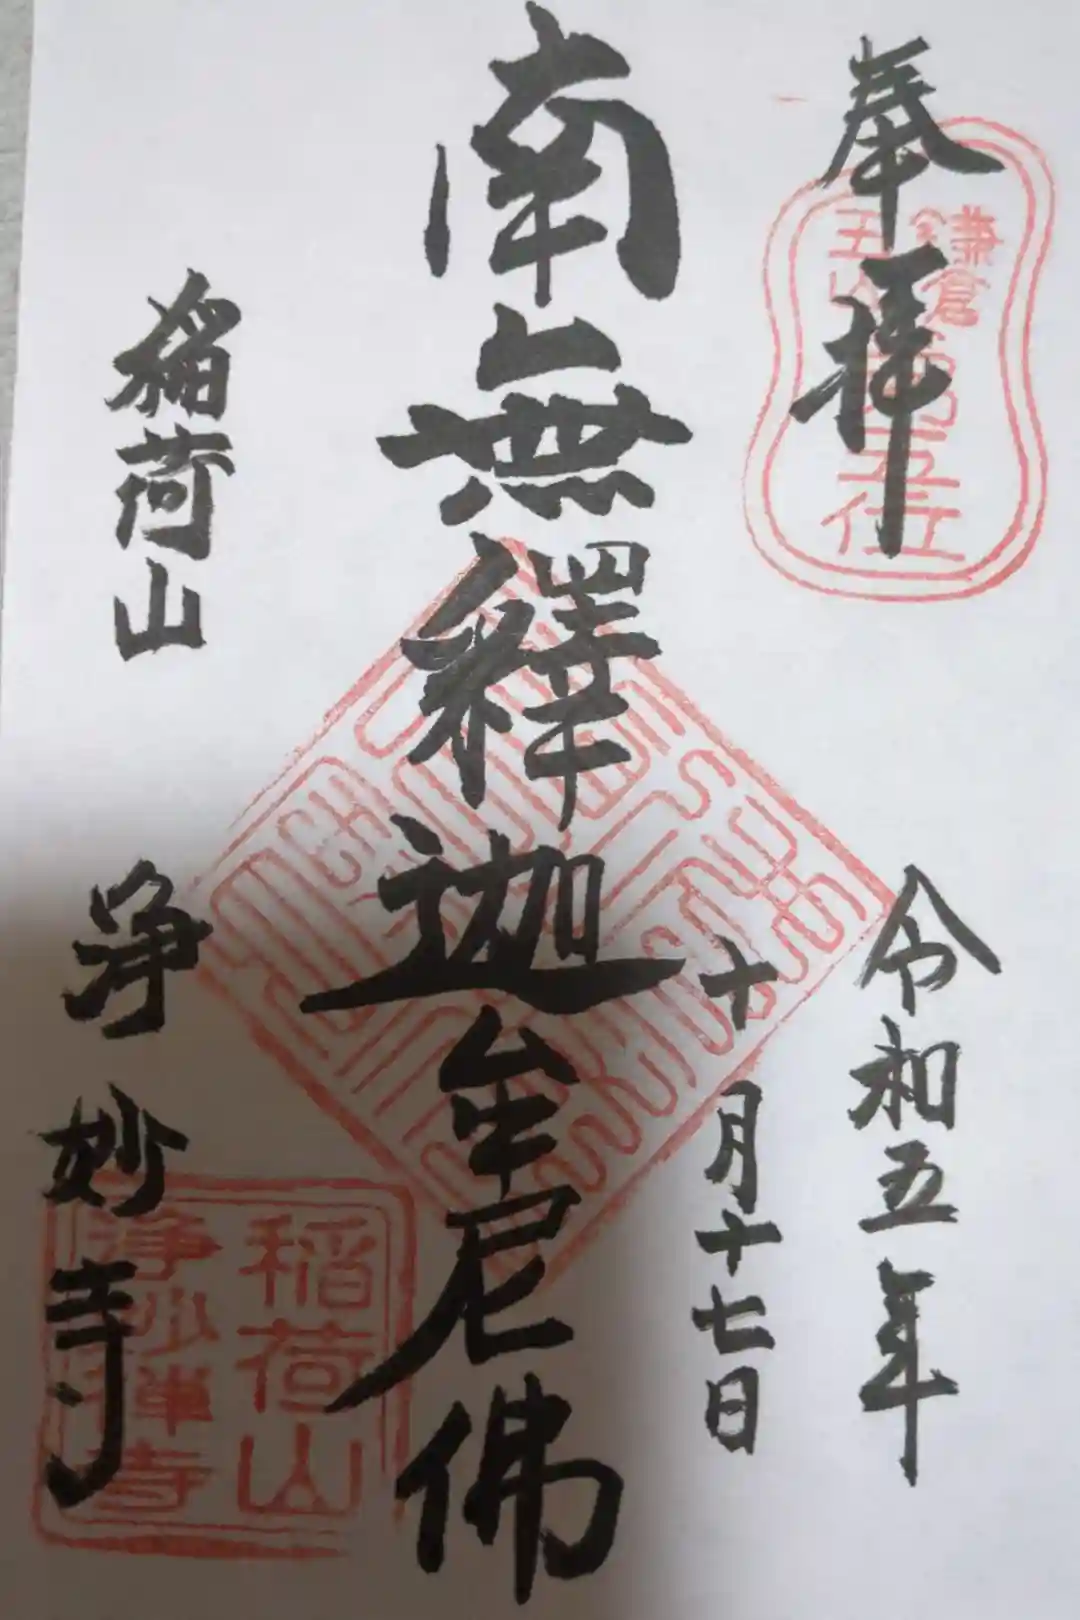 奉拝
鎌倉
五山
第五位
令和五年
十月十七日
南無釋迦牟尼佛
稲荷山
浄妙寺
稲荷山
浄妙禅寺